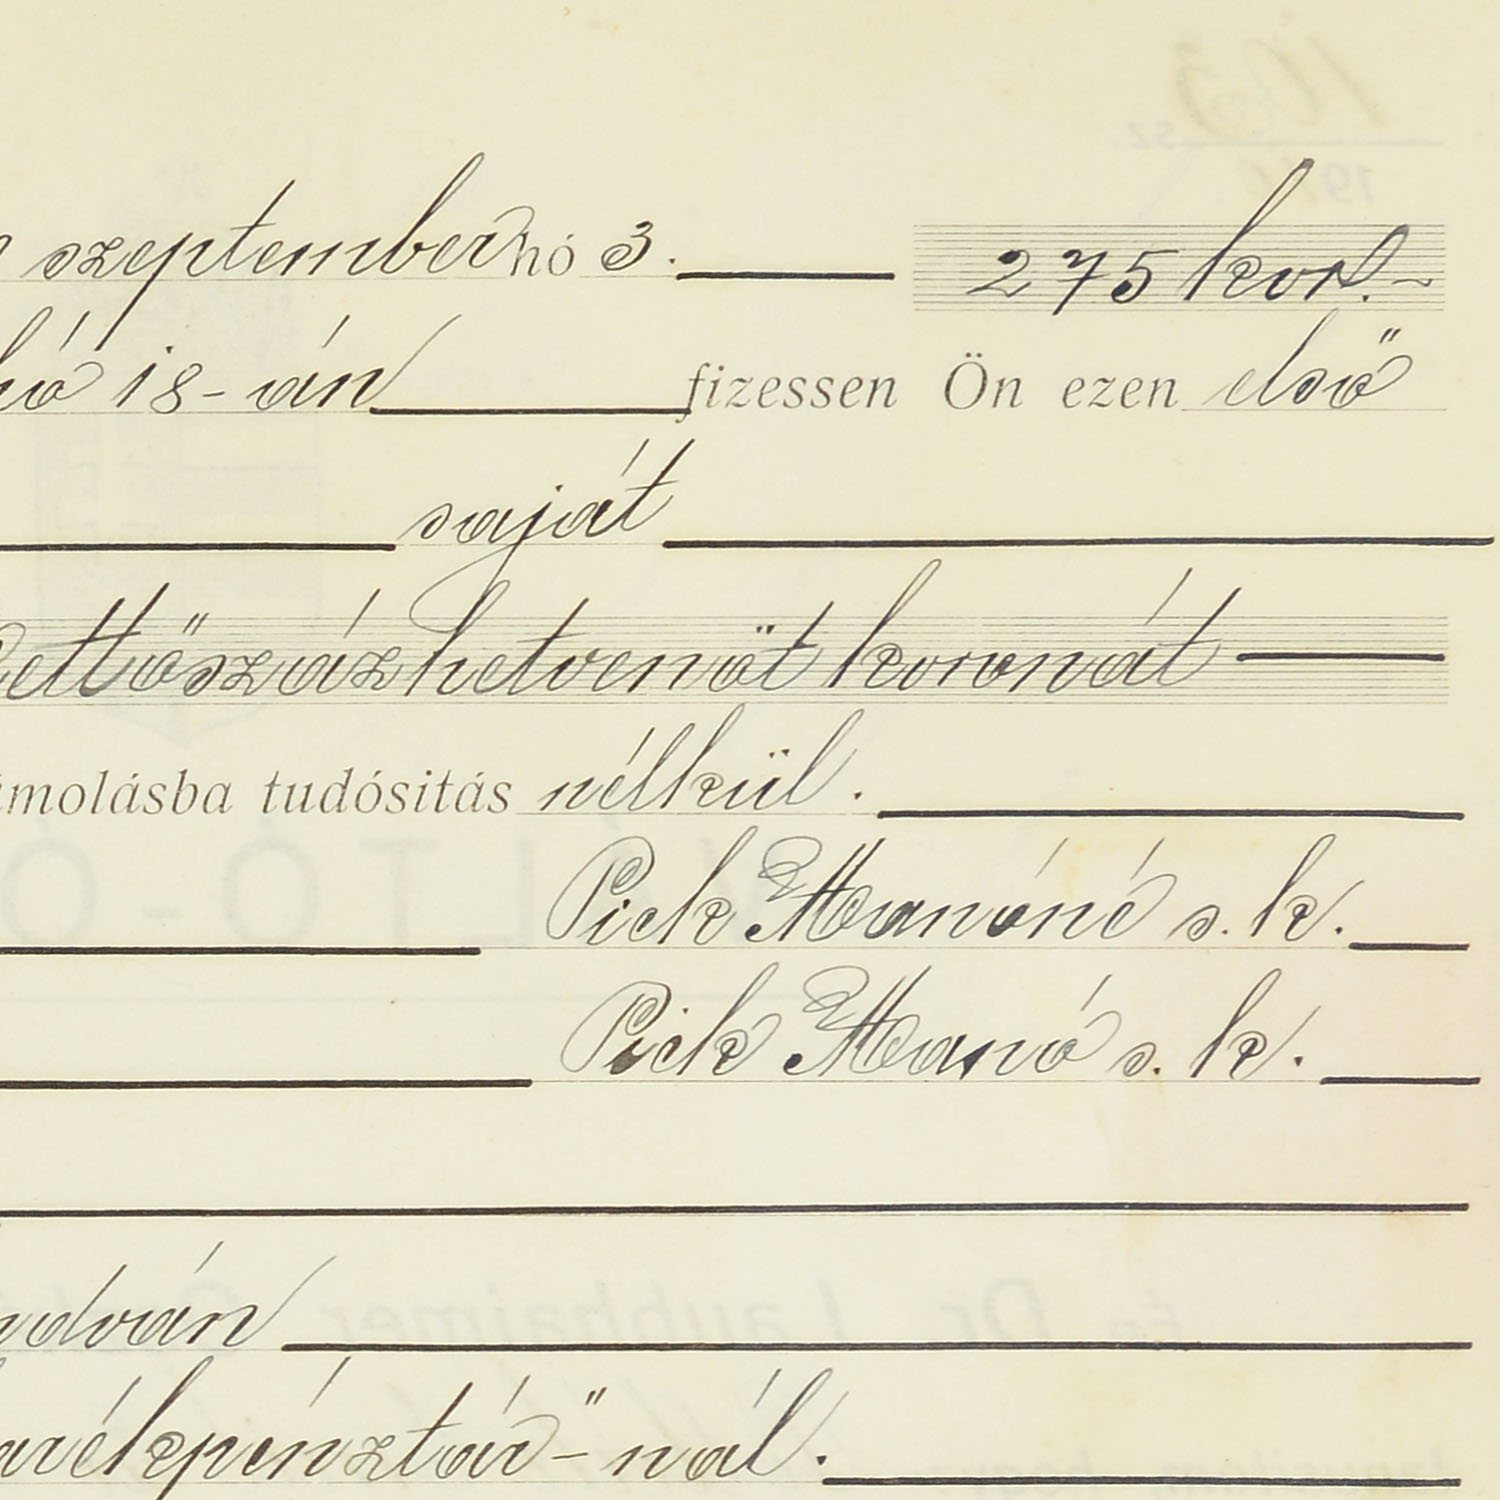 szeptember hó 3. 275 kor.-
hó 18-án fizessen Ön ezen első
saját
Kettőszázhetvenöt koronát
ámolásba tudósitás nélkül.
Pick Manóné s. k.
Pick Manó s. k.
ndván
arékpénztár"-nál.